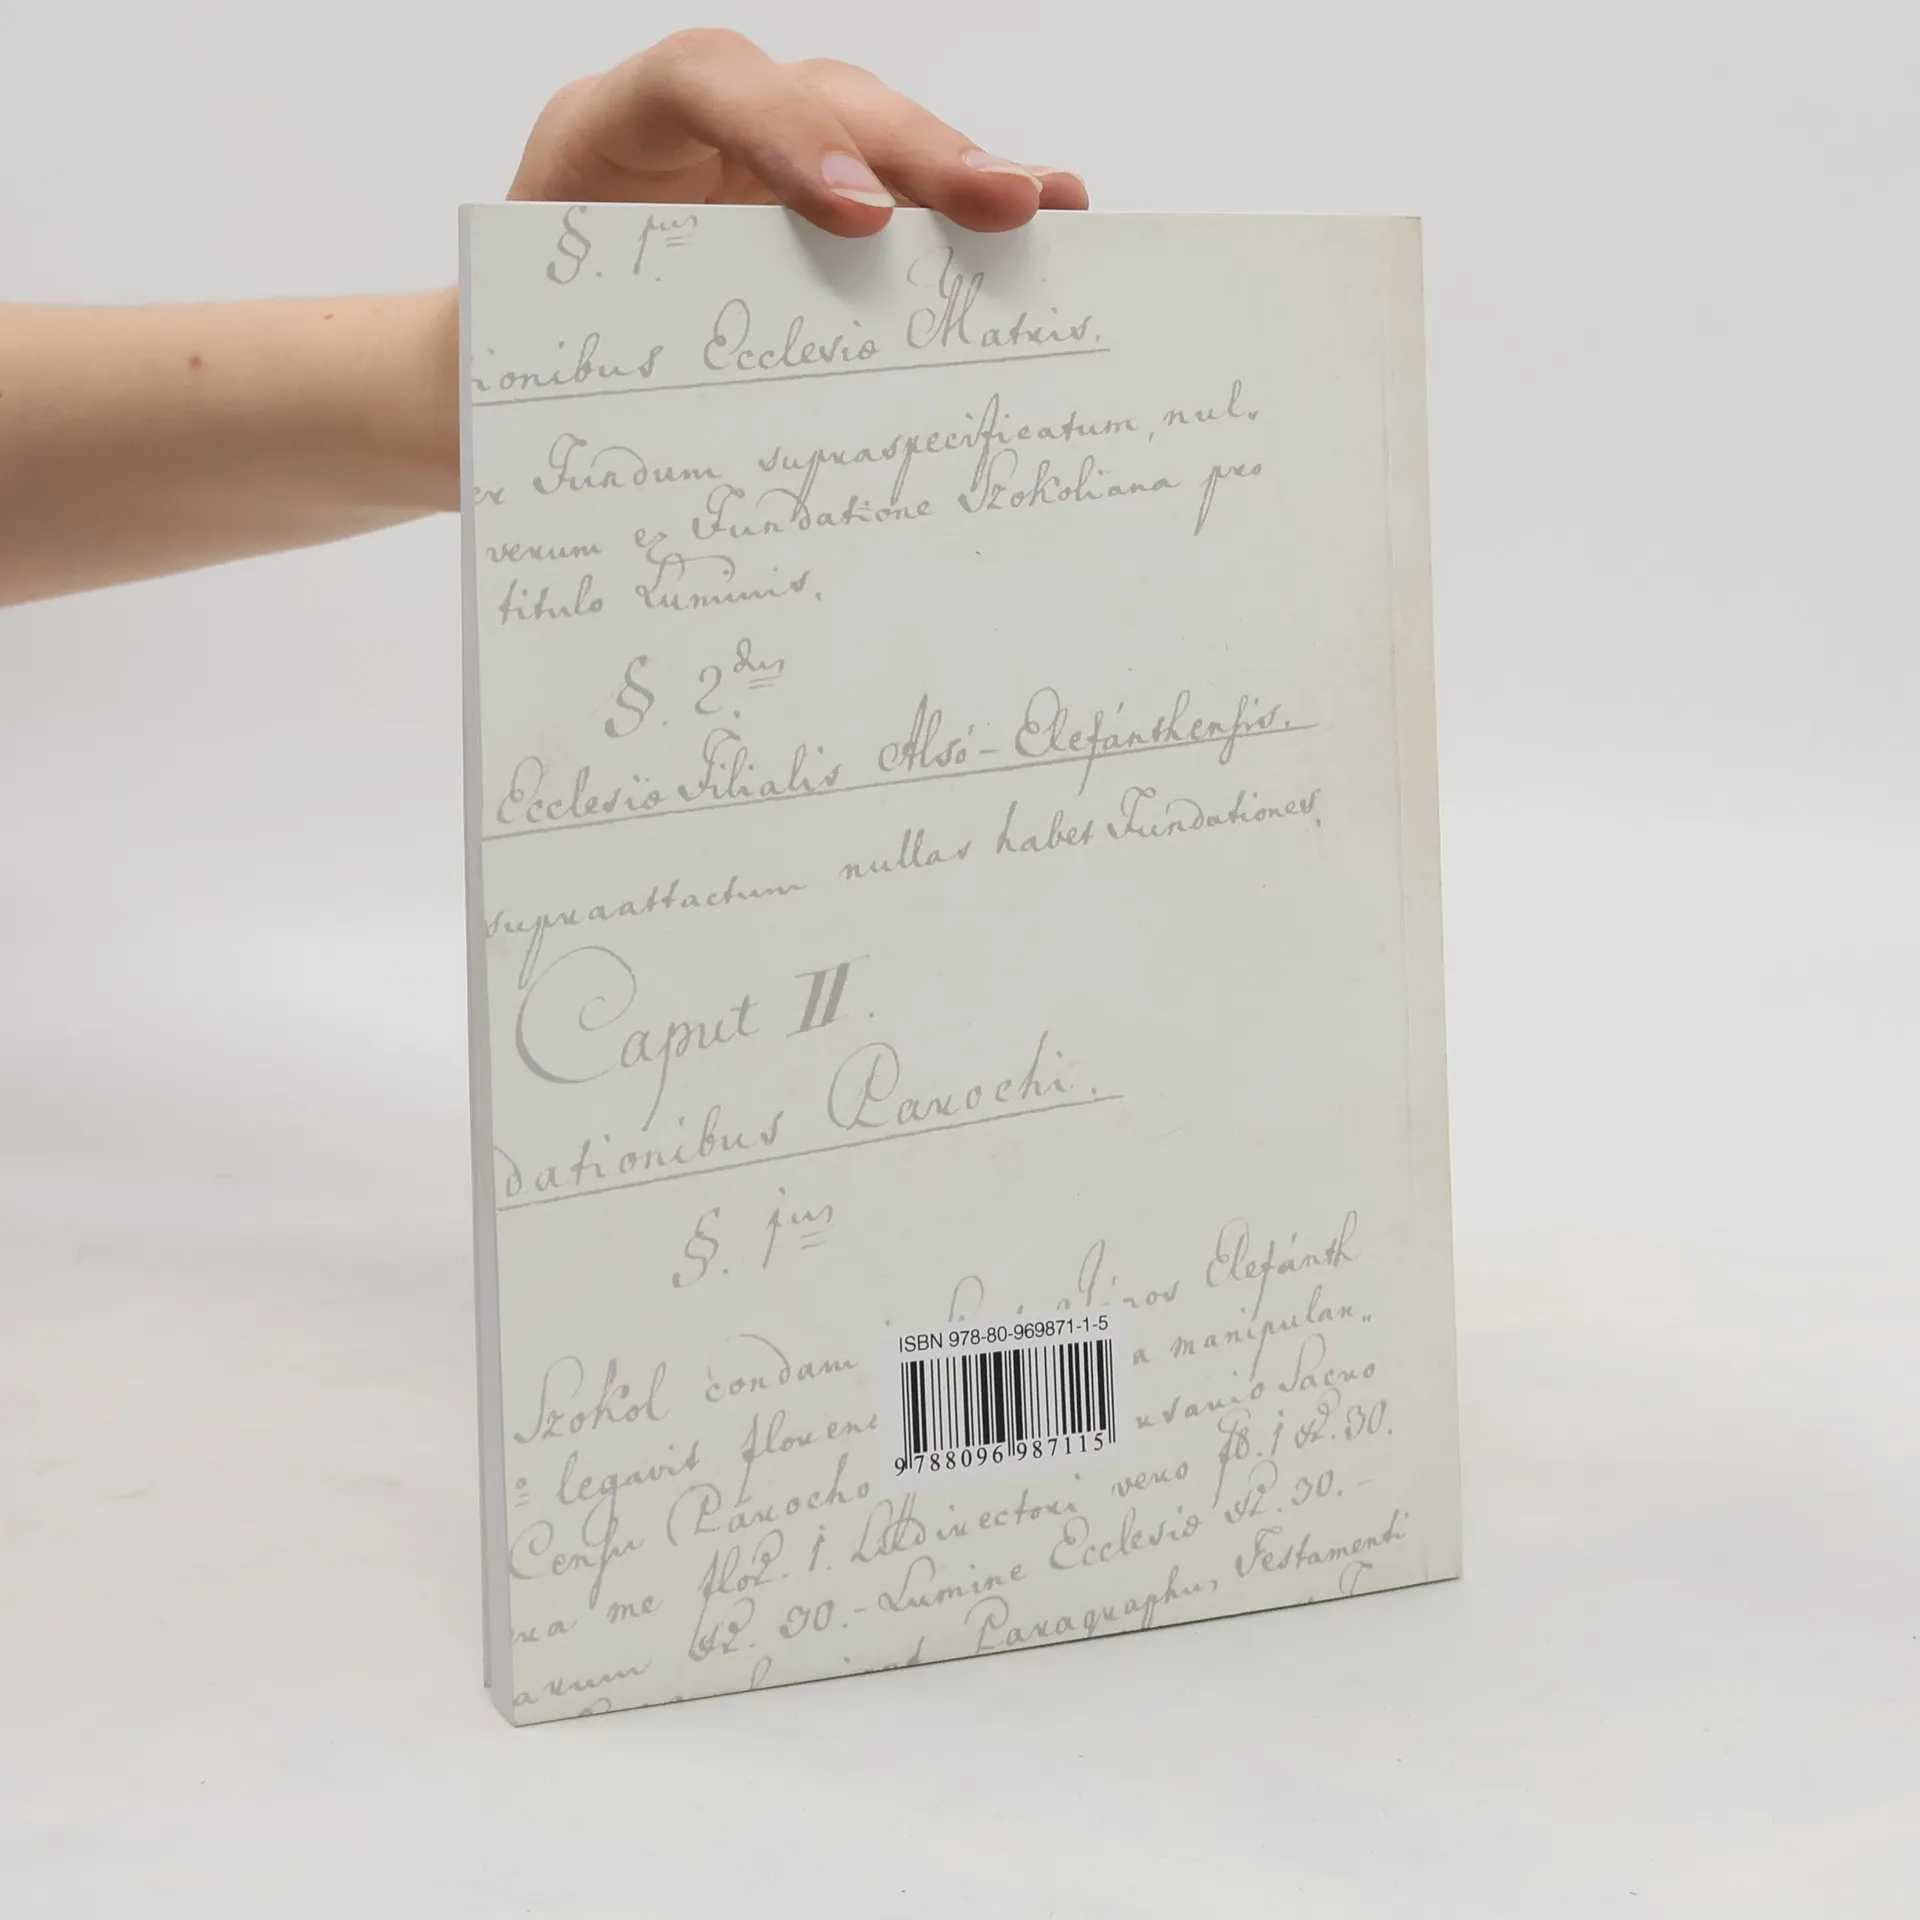 §. 1mus
ionibus Ecclesiæ Matris.
er Fundum supraspecificatum, nul„
verum ex Fundatione Szokoliana pro
titulo Luminis.
§. 2dus
Ecclesiæ Filialis Alsó-Elefánthensis.
supraattactum nullas habet Fundationes.
Caput II.
dationibus Parochi.
§. 1us
Elefánth
Szokol condam a manipulan„
legavit floren Sacro
Censu Parocho
me flor. 1. Ludirectori vero 30.
30.- Lumine Ecclesiæ 30.-
arum Paragraphus, Testamenti
ISBN 978-80-969871-1-5
9 788096 987115